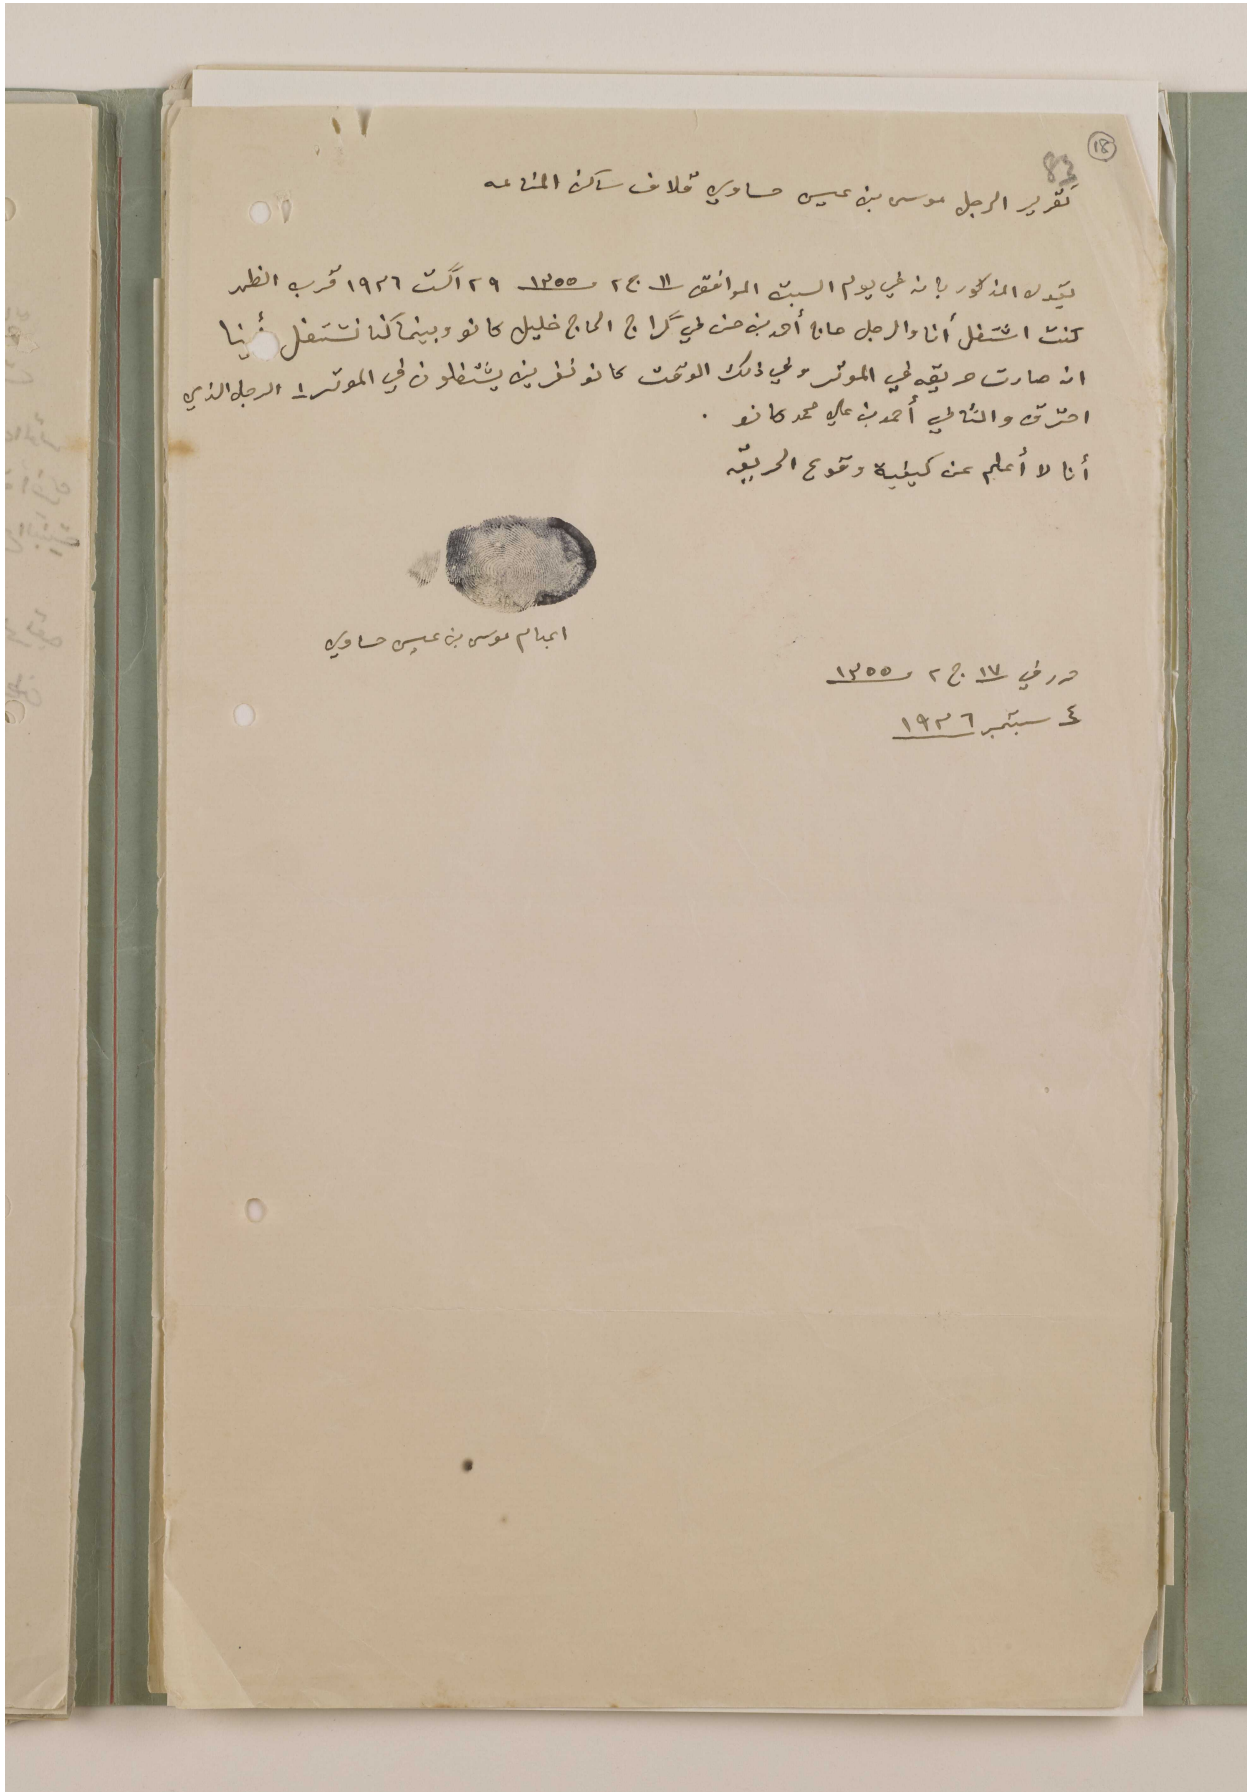 18
84
تقرير الرجل موسى بن عيسى حساوي قلاف ساكن المناعه
يقول المذكور بانه في يوم السبت الموافق ١١ ج ٢ ١٣٥٥ ٢٩ آگست ١٩٣٦ قرب الظهر
كنت اشتغل أنا والرجل حاج أحمد بن حسن في گراج الحاج خليل كانو وبينما كنا نشتغل رأينا
انه صارت حريقه في الموتر وفي ذلك الوقت كانو نفرين يشتغلون في الموتر ١ الرجل الذي
احترق والثاني أحمد بن علي محمد كانو .
أنا لا أعلم عن كيفية وقوع الحريقه
ابهام موسى بن عيسى حساوي
حرر في ١٧ ج ٢ ١٣٥٥
٤ سبتمبر ١٩٣٦